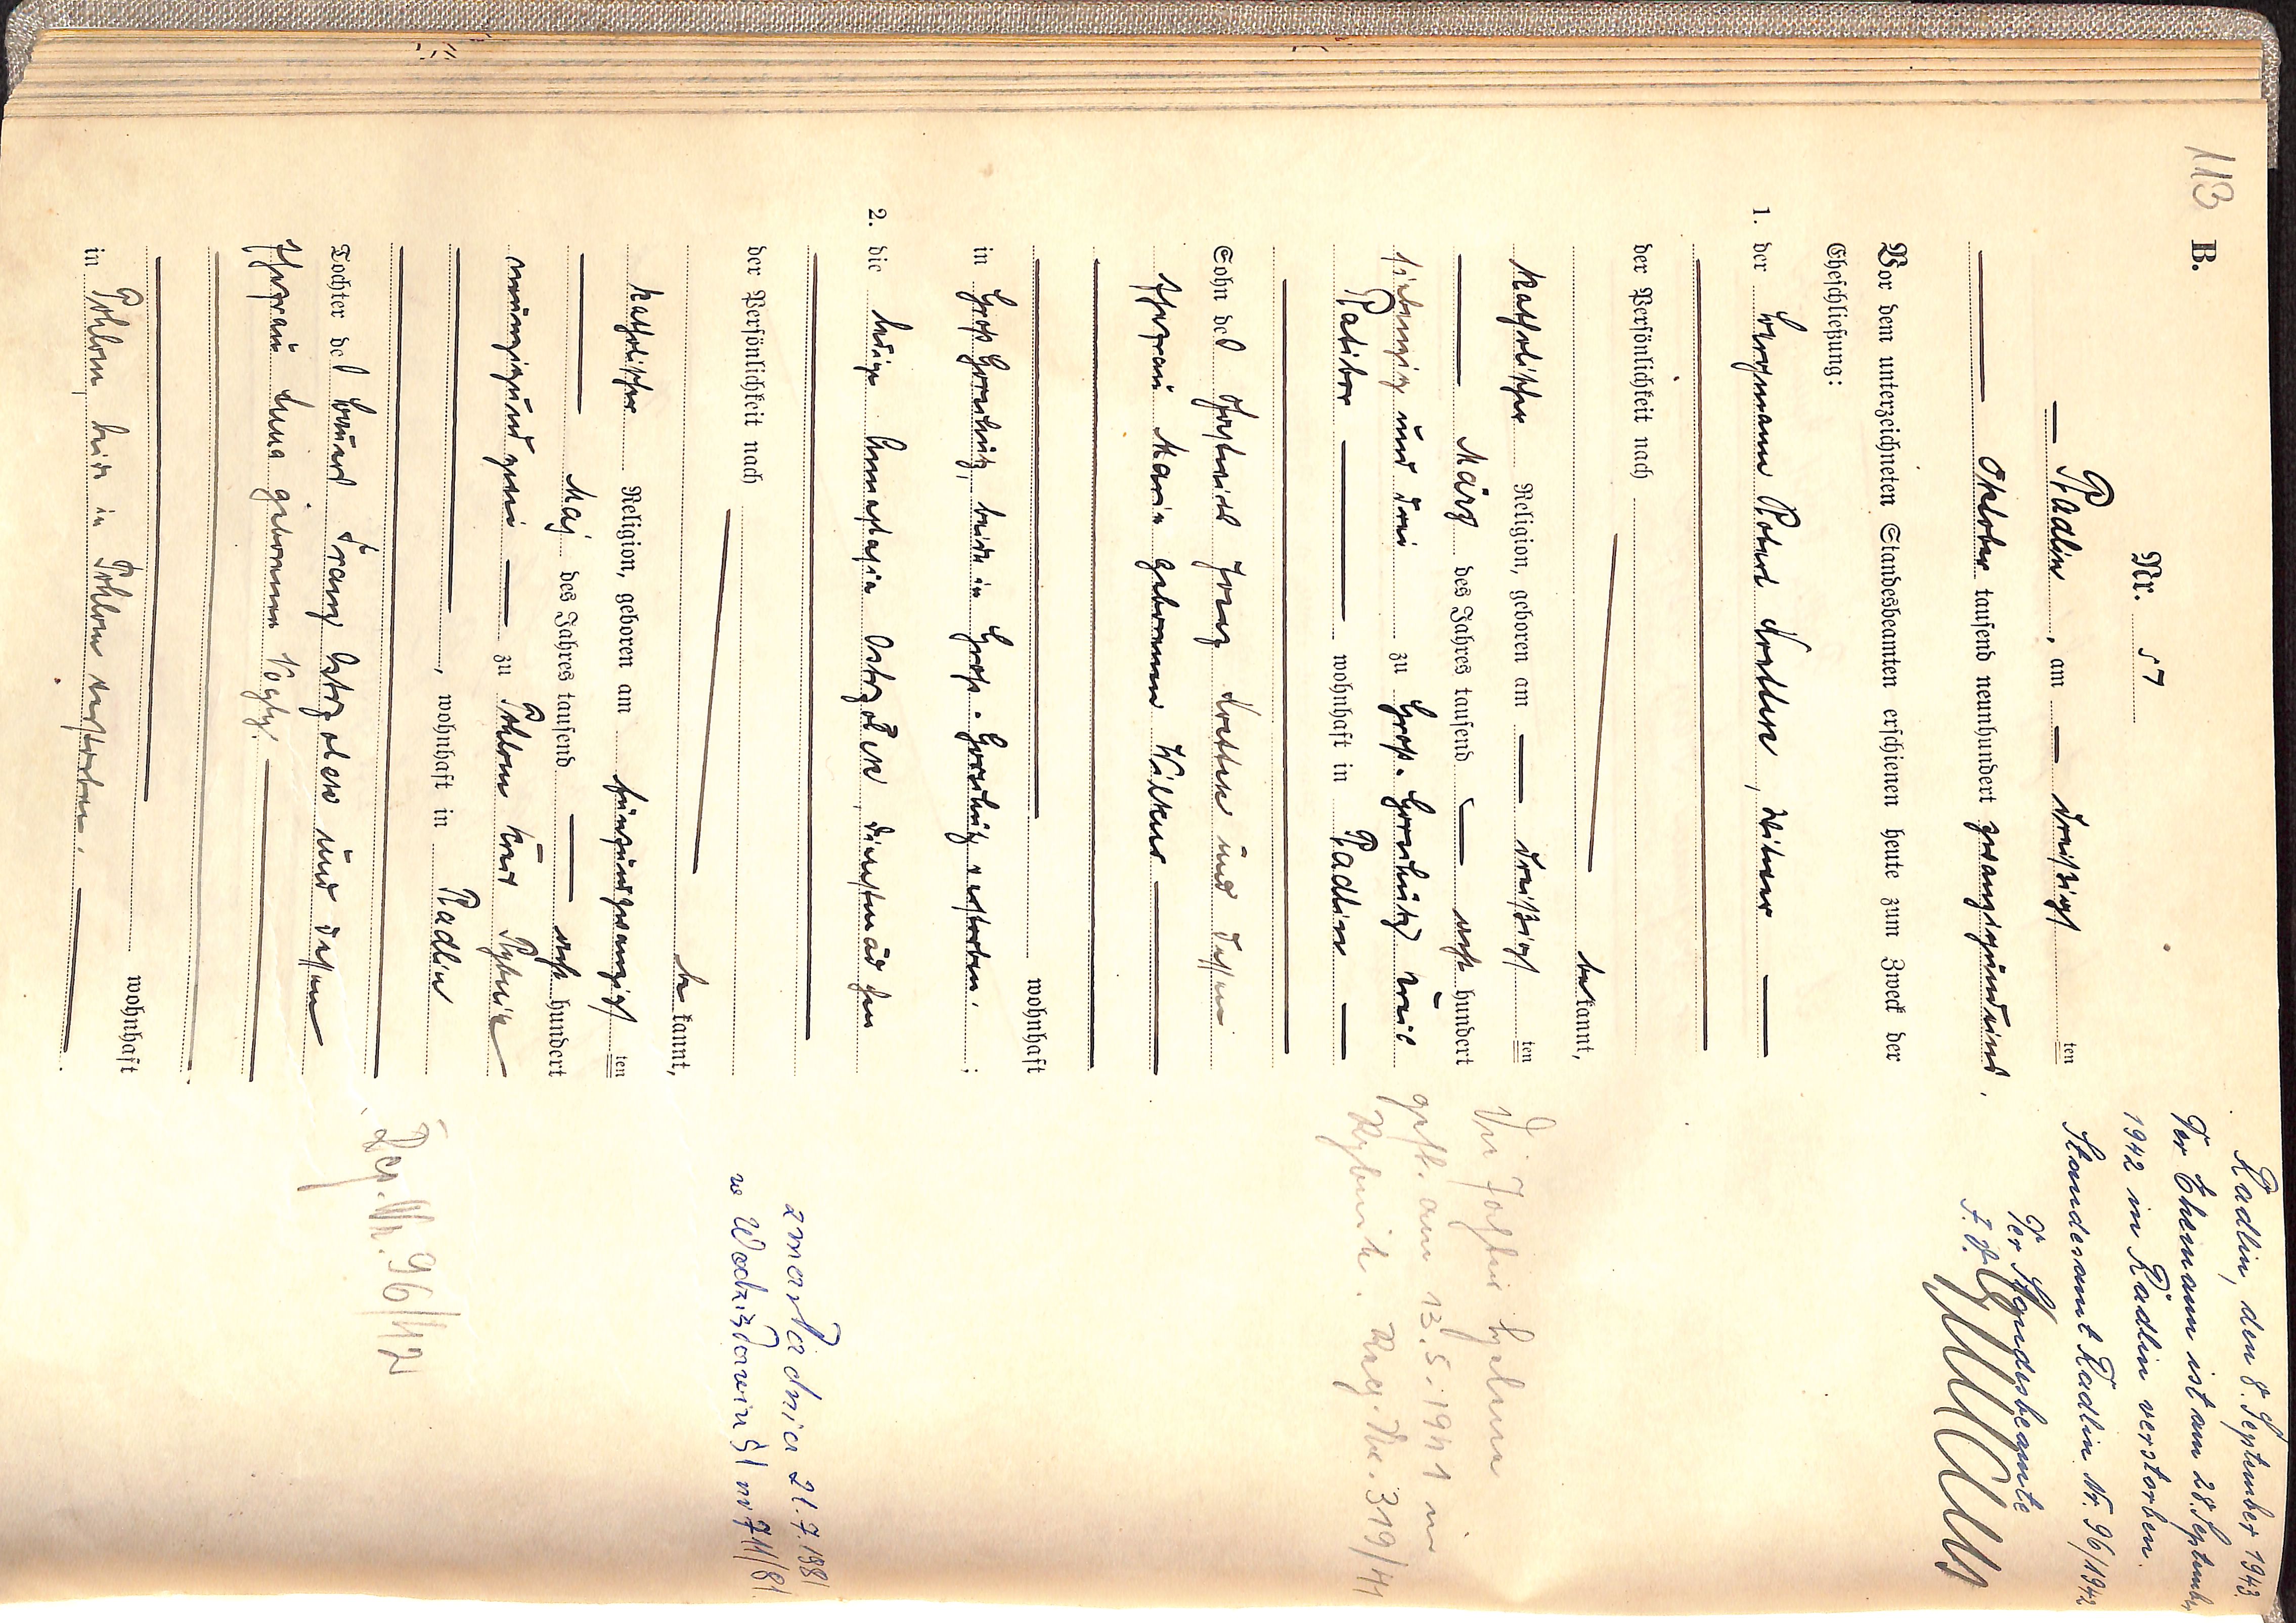 113 B.
Nr. 57
Radlin, am dreißigs ten
Oktober tausend neunhundert zwanzigundeins.
Vor dem unterzeichneten Standesbeamten erschienen heute zum Zweck der
Eheschließung:
1. der Bergmann Robert Krettek, Witwer
der Persönlichkeit nach
bekannt,
katholischer Religion, geboren am dreißigs ten
März des Jahres tausend acht hundert
siebenzig und drei zu Groß-Gorschütz Kreis
Ratibor wohnhaft in Radlin
Sohn des Gastwirts Franz Krettek und dessen
Ehefrau Marie geborenen Wilkus
wohnhaft
in Groß Gorschütz, beide in Gross-Gorschütz verstorben. ;
2. die ledige Annastasia Ostrzolek, Dienstmädchen
der Persönlichkeit nach
bekannt,
katholischer Religion, geboren am fünfundzwanzigs ten
Maj des Jahres tausend acht hundert
neunzigund zwei zu Pohlom Kreis Rybnik
, wohnhaft in Radlin
Tochter des Bauers Franz Ostrzolek und dessen
Ehefrau Anna geborenen
wohnhaft
in Pohlom, beide in Pohlom verstorben.
Radlin, den 8. September 1943.
Der Ehemann ist am 28. September
1942 in Radlin verstorben.
Standesamt Radlin Nr. 96/1942
Der Standesbeamte
I. V.
Die Tochter Helene
gest. am 13.5.1941 in
Rybnik. Reg. Nr. 319/41
zmarła dnia 21.7.1981
w Wodzisławiu Śl nr 711/81.
Reg. Nr. 96/42